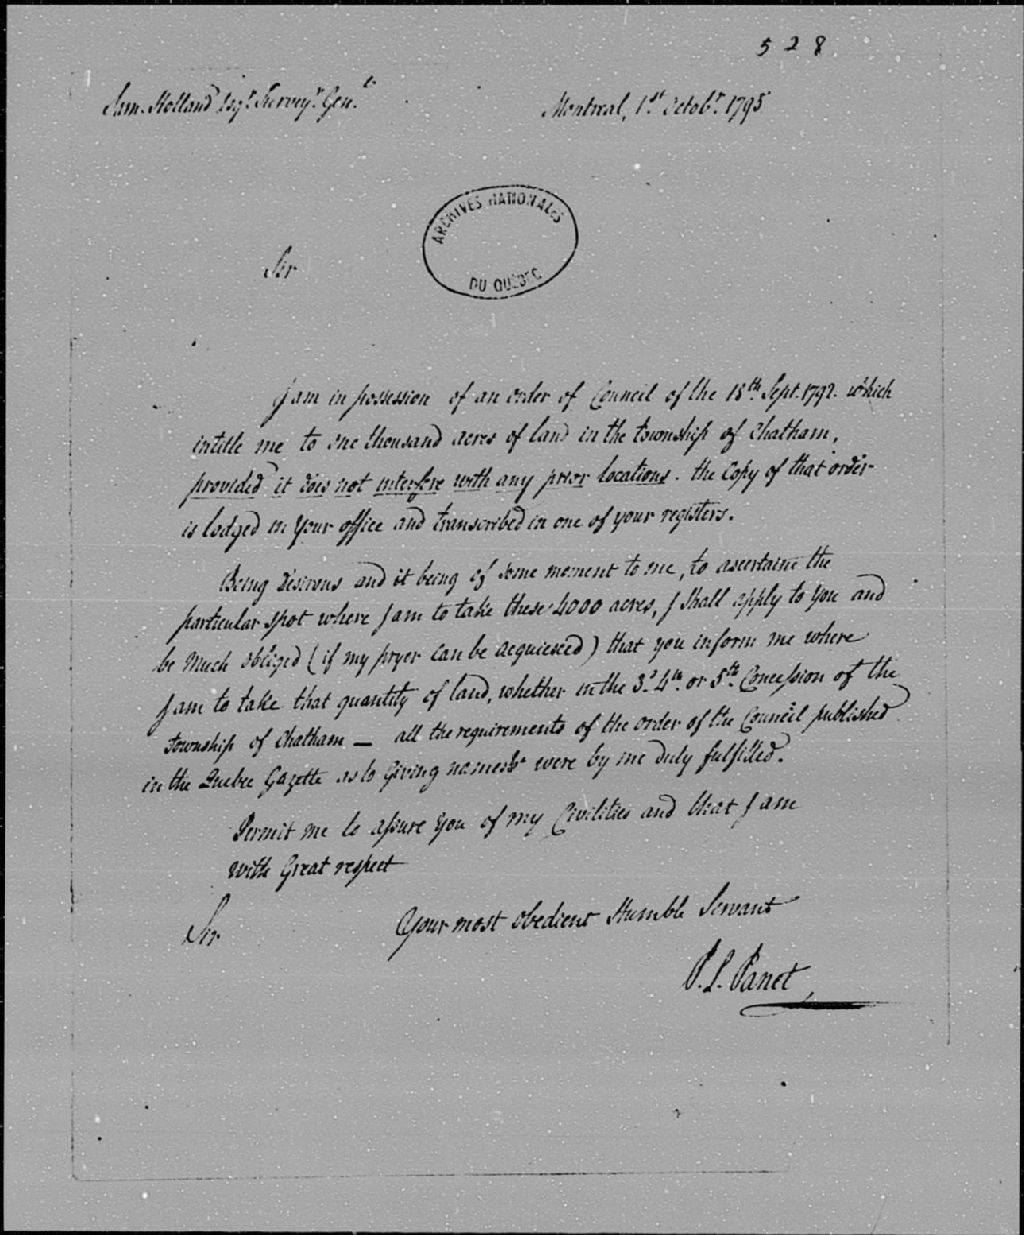 528
Sam. Holland Esqr. Surveyr. Genl.
Montreal, 1st Octobr. 1795
ARCHIVES NATIONALES
DU QUÉBEC
Sir
I am in possession of an order of Council of the 18th Sept. 1792. which
intitle me to One thousand acres of land in the township of Chatham,
provided it does not interfere with any prior locations. the Copy of that order
is lodged in your office and transcribed in one of your registers.
Being desirous and it being of some moment to me, to ascertaine the
particular spot where I am to take these 4000 acres, I shall apply to you and
be much obliged (if my pryer can be acquiesced) that you inform me where
I am to take that quantity of land, whether in the 3d. 4th. or 5th. Concession of the
township of Chatham — all the requirements of the order of the Council published
in the Quebec Gazette as to Giving names &c were by me duly fulfilled.
Permit me to assure you of my Civilities and that I am
with Great respect
Sir
Your most obedient Humble Servant
P. L. Panet